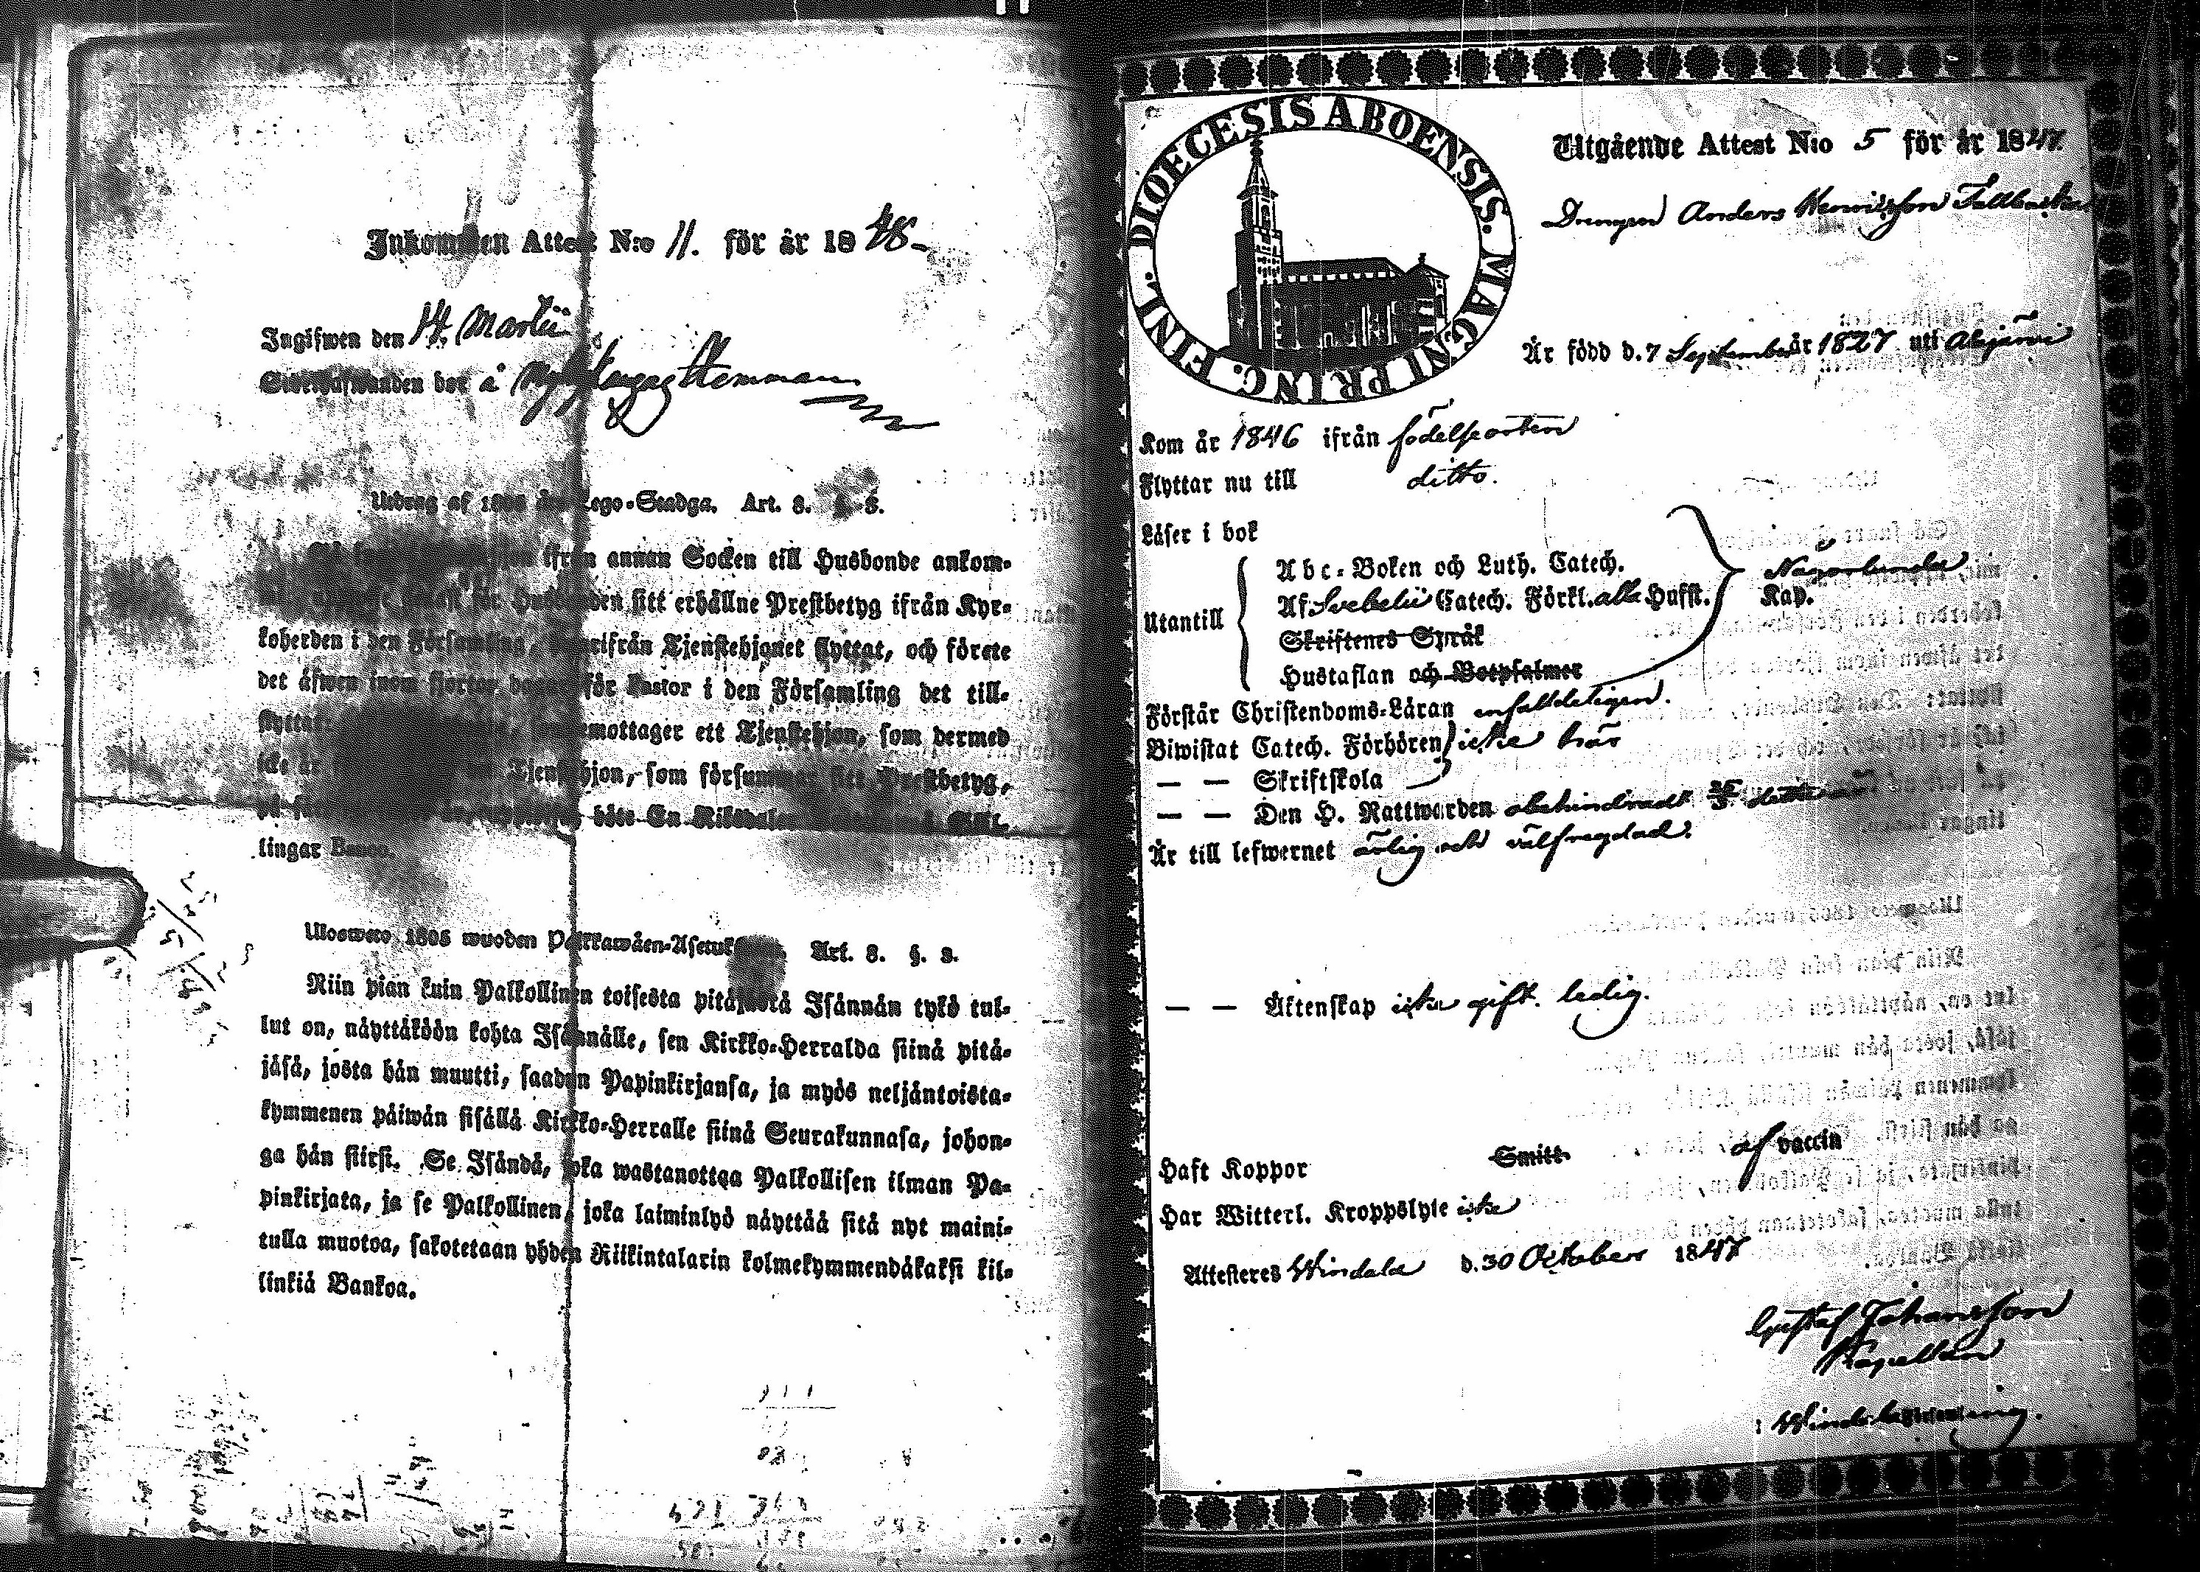 Inkommen Attest N:o 11. för år 1848
Ingifwen den 14 Martii
å
Utdrag af 1805 års Lego-Stadga. Art. 8. §. 3.
ifrån annan Socken till Husbonde ankom-
sitt erhållne Prestbetyg ifrån Kyr-
koherden i den Församling, hwarifrån Tjenstehjonet flyttat, och förete
det äfwen inom fjorton dagar för Pastor i den Församling det till-
flyttat emottager ett Tjenstehjon, som dermed
icke är Tjenstehjon, som försummar sitt Prestbetyg,
på böte En Riksdaler Skil-
lingar Banco.
Uloswero 1805 wuoden Palkkawäen-Asetuksesta. Art. 8. §. 3.
Niin pian kuin Palkollinen toisesta pitäjästä Isännän tykö tul-
lut on, näyttäköön kohta Isännälle, sen Kirkko-Herralda siinä pitä-
jäsä, josta hän muutti, saadun Papinkirjansa, ja myös neljäntoista-
kymmenen päiwän sisällä Kirkko-Herralle siinä Seurakunnasa, johon-
ga hän siirsi. Se Isändä, joka wastanottaa Palkollisen ilman Pa-
pinkirjata, ja se Palkollinen, joka laiminlyö näyttää sitä nyt maini-
tulla muotoa, sakotetaan yhden Riikintalarin kolmekymmendäkaksi kil-
linkiä Bankoa.
DIOECESIS ABOENSIS. MAGNI PRINC. FINL.
Utgående Attest N:o 5 för år 1847
Drengen Anders Henricsson Fallbacka
Är född d. 7 September år 1827 uti Alajärvi
Kom år 1846 ifrån födelseorten
Flyttar nu till ditto.
Läser i bok
Utantill
Abc-Boken och Luth. Catech.
Af Svebelii Catech. Förkl. alla Hufst.
Skriftenes Språk
Hustaflan och Botpsalmer
Någorlunda
Kap.
Förstår Christendoms-Läran enfaldeligen.
Biwistat Catech. Förhören icke här
— — Skriftskola
— — Den H. Nattwarden obehindradt
Är till lefwernet ärlig och välfregdad.
— — Äktenskap icke gift. ledig.
Haft Koppor Smitt af vaccin
Har Witterl. Kroppslyte icke
Attesteres Windala d. 30 October 1847
Gustaf Johansson
Kapellan